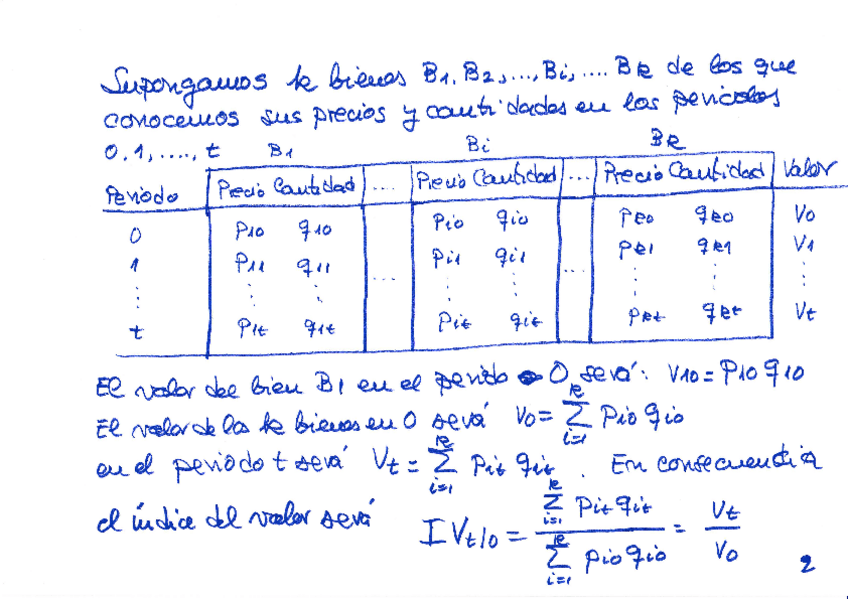 Supongamos k bienes B1, B2, ..., Bi, .... Bk de los que
conocemos sus precios y cantidades en los periodos
0, 1, ...., t B1 Bi Bk
Periodo Precio Cantidad ... Precio Cantidad ... Precio Cantidad Valor
0 p10 q10 pi0 qi0 pk0 qk0 V0
1 p11 q11 ... pi1 qi1 ... pk1 qk1 V1
⋮ ⋮ ⋮ ⋮ ⋮ ⋮ ⋮ ⋮
t p1t q1t pit qit pkt qkt Vt
El valor del bien B1 en el periodo 0 será: V10 = P10 q10
El valor de los k bienes en 0 será V0 = Σ_{i=1}^{k} Pi0 qi0
en el periodo t será Vt = Σ_{i=1}^{k} Pit qit . En consecuencia
el índice del valor será IVt/0 = Σ_{i=1}^{k} Pit qit / Σ_{i=1}^{k} Pi0 qi0 = Vt / V0
2